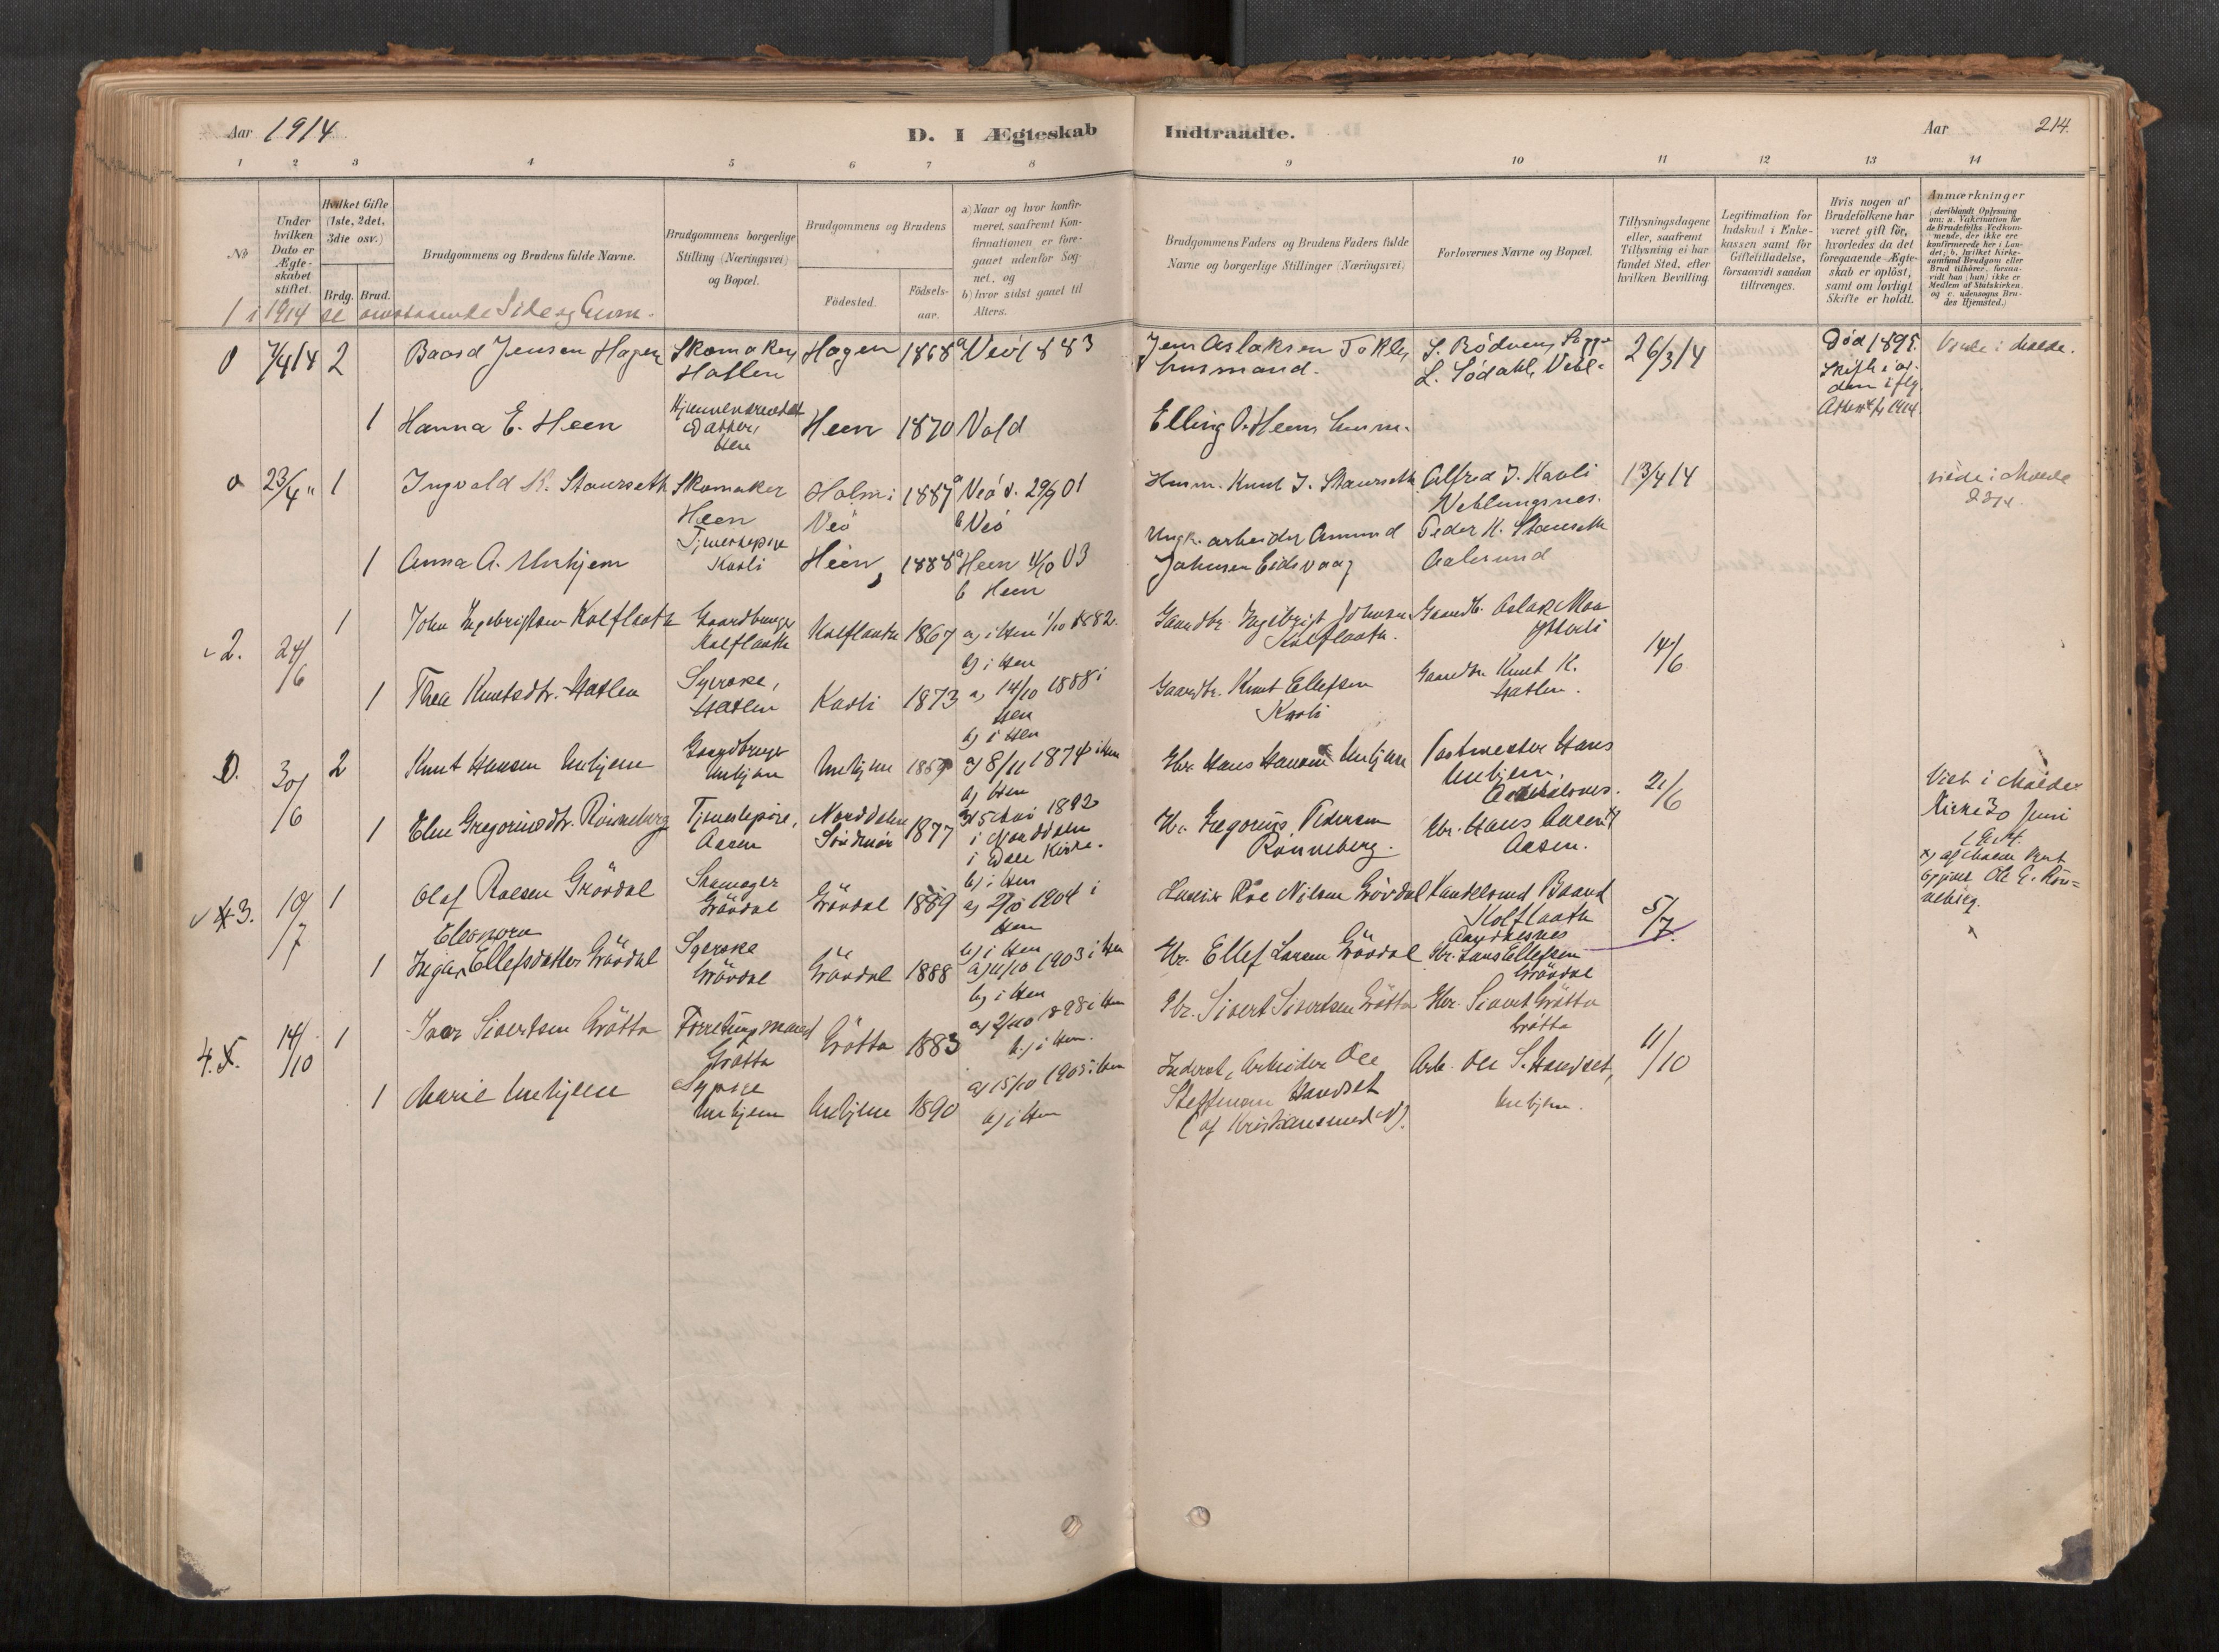 Aar 1914
D. I Ægteskab
Indtraadte.
Aar
214.
1 2 3 4 5 6 7 8 9 10 11 12 13 14
No
Under hvilken Dato er Ægteskabet stiftet.
Hvilket Gifte (1ste, 2det, 3die osv.)
Brdg. Brud.
Brudgommens og Brudens fulde Navne.
Brudgommens borgerlige Stilling (Næringsvei) og Bopæl.
Brudgommens og Brudens
Födested.
Födselsaar.
a) Naar og hvor konfirmeret, saafremt Konfirmationen er foregaaet udenfor Sognet, og
b) hvor sidst gaaet til Alters.
Brudgommens Faders og Brudens Faders fulde Navne og borgerlige Stillinger (Næringsvei)
Forlovernes Navne og Bopæl.
Tillysningsdagene eller, saafremt Tillysning ei har fundet Sted, efter hvilken Bevilling.
Legitimation for Indskud i Enkekassen samt for Giftetilladelse, forsaavidt saadan tiltrænges.
Hvis nogen af Brudefolkene har været gift för, hvorledes da det foregaaende Ægteskab er oplöst, samt om lovligt Skifte er holdt.
Anmærkninger
(deriblandt Oplysning om: a. Vakcination for de Brudefolks Vedkommende, der ikke ere konfirmerede her i Landet; b. hvilket Kirkesamfund Brudgom eller Brud tilhörer, forsaavidt han (hun) ikke er Medlem af Statskirken, og c. udensogns Brudes Hjemsted.)
1 i 1914 se
0 7/4 14 2 Baard Jensen Hagen Skomaker, Hatlen Hagen 1868 a Veö 1883 Jens Aslaksen Tokle, husmand. S. Rödven, L. Södahl, 26/3 14 Död 1895. Skifte i Molde.
1 Hanna E. Heen datter, Hen Heen 1870 Vold Elling O. Heen, husm. 1914
0 23/4 " 1 Ingvald K. Staurseth Skomaker Heen Holm i Veö 1887 a Veö d. 29/9 01 b Veö Husm. Knut J. Staurseth Alfred J. Kavli Veblungsnes. 13/4 14 viede i Molde
1 Anna A. Unhjem Tjenestepige Kavli Heen 1888 a Heen 11/10 03 b Heen arbeider Amund Johnsen Eidsvaag Peder K. Staurseth Aalesund
2. 24/6 1 John Ingebrigtsen Kolflaath Gaardbruger Kolflaath Kolflaath 1867 a) i Hen 1/10 1882. b) i Hen Gaardbr. Ingebrigt Johnsen Kolflaath. Gaardb. Aslak Moa 14/6
1 Thea Knutsdtr. Hatlen Syerske, Hatlen Kavli 1873 a) 14/10 1888 i Hen b) i Hen Gaardbr. Knut Ellefsen Kavli Gaardbr. Knut K. Hatlen.
0. 30/6 2 Knut Hansen Unhjem Gaardbruger Unhjem Unhjem 1859 a) 8/11 1874 i Hen b) Hen Gbr. Hans Hansen Unhjem Postmester Hans Unhjem, Aandalsnes. 21/6 Viet i Molde Kirke 30 Juni
1 Gregoriusdtr. Rönneberg Tjenestepige, Aasen Norddalen Söndmör 1877 1892 i Norddalen i Dale Kirke. b) i Hen Gbr. Gregorius Pedersen Rönneberg. Gbr. Hans Aasen Aasen.
3. 10/7 1 Olaf Roesen Grövdal Skomager Grövdal Grövdal 1889 a) 2/10 1904 i Hen b) i Hen Roe Nilsen Grövdal Handelsmd Baard Kolflaath Aandalsnes 5/7.
1 Inga Eleonora Ellefsdatter Grövdal Syerske Grövdal Grövdal 1888 a) 11/10 1903 i Hen b) i Hen Gbr. Ellef Larsen Grövdal Gbr. Lars Ellefsen Grövdal
4. 14/10 1 Ivar Sivertsen Grötta Forretningsmand Grötta Grötta 1883 a) 2/10 1898 i Hen b) i Hen. Gbr. Sivert Sivertsen Grötta Gbr. Sivert Grötta Grötta 11/10
1 Marie Unhjem Sypige Unhjem Unhjem 1890 a) 15/10 1905 i Hen b) i Hen Inderst, Arbeider Ole Steffensen Handset (af Kristiansund N). Arb. Ole S. Handset, Unhjem.